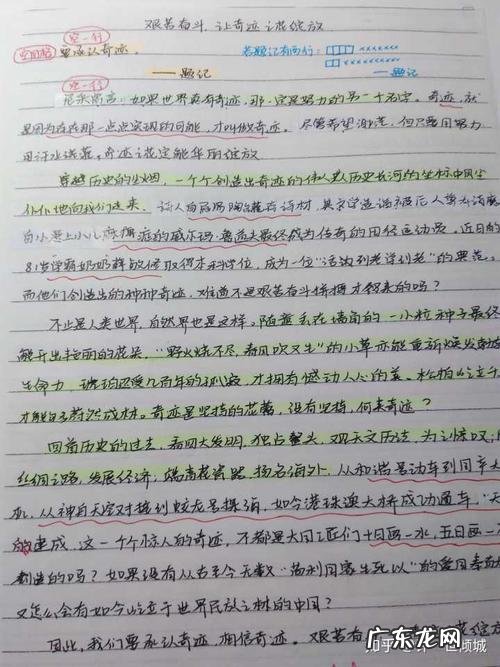 艰苦奋斗,让奇迹之花绽放
空一行
空四格 要承认奇迹。 若题记有两行:
——题记 ——题记
空一行
尼采寓言:如果世界真有奇迹,那一定是努力的另一个名字。奇迹,就
是因为存在那一点点实现的可能,才叫做奇迹。尽管希望渺茫,但只要用努力
用汗水浇灌。奇迹之花定能华丽绽放
穿越历史的烟,一个个创造出奇迹的伟人从历史长河的坐标中风尘
仆仆地向我们走来。
自小患上小儿麻痹症的威尔玛·鲁道夫最终成为传奇的田径运动员。近日的
81岁学霸奶奶薛敏修取得本科学位,成为一位“活到老学到老”的典范。
而他们创造出的种种奇迹,难道不是艰苦奋斗拼搏才得来的吗?
不止是人类世界,自然界也是这样。随意丢在墙角的一小粒种子最终
能开出艳丽的花朵,“野火烧不尽,春风吹又生”的小草亦能重新焕发
生命力,琥珀忍受几百年的孤寂,才拥有憾动人心的美。松柏屹立千
才能蔚然成材。奇迹是坚持的花蕾,没有坚持,何来奇迹?
回首历史的过去,看四大发明,独占鳌头,观天文历法,为之惊叹;
丝绸之路,发展经济;瑞商花瓷器,扬名海外,从和谐号动车到国产大
机,从神舟天宫对接到蛟龙号探海,如今港珠澳大桥成功通车,“天
的建成,这一个个惊人的奇迹,不都是大国工匠们十日画一水,五日画一
创造的吗?如果没有从古至今无数“苟利国家生死以”的爱国
又怎么会有如今屹立于世界民族之林的中国?
因此,我们要承认奇迹,相信奇迹。艰苦奋
知乎
广东龙网